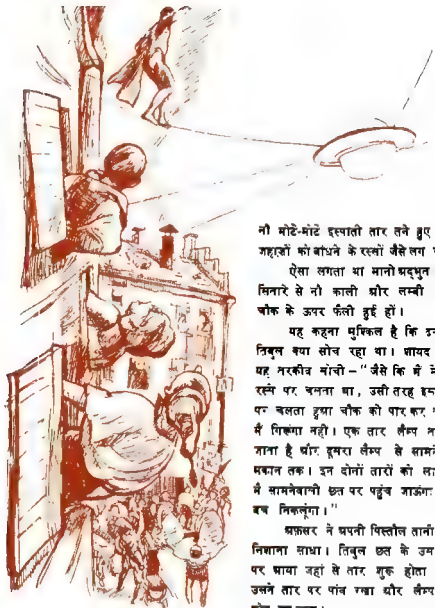 नौ मोटे-मोटे इस्पाती तार तने हुए
जहाज़ों को बांधने के रस्सों जैसे लग
ऐसा लगता था मानो अद्भुत
सितारे से नौ काली और लम्बी
चौक के ऊपर फैली हुई हों।
यह कहना मुश्किल है कि इन
तिबुल क्या सोच रहा था। शायद
यह तरकीब सोची – "जैसे कि मैं ने
रस्से पर चलता था, उसी तरह इस
पर चलता हुआ चौक को पार कर
मैं गिरूंगा नहीं। एक तार लैम्प
जाता है और दूसरा लैम्प से सामने
मकान तक। इन दोनों तारों को
मैं सामनेवाली छत पर पहुंच जाऊंगा
बच निकलूंगा।"
अफ़सर ने अपनी पिस्तौल तानी
निशाना साधा। तिबुल छत के उस
पर आया जहां से तार शुरू होता
उसने तार पर पांव रखा और लैम्प